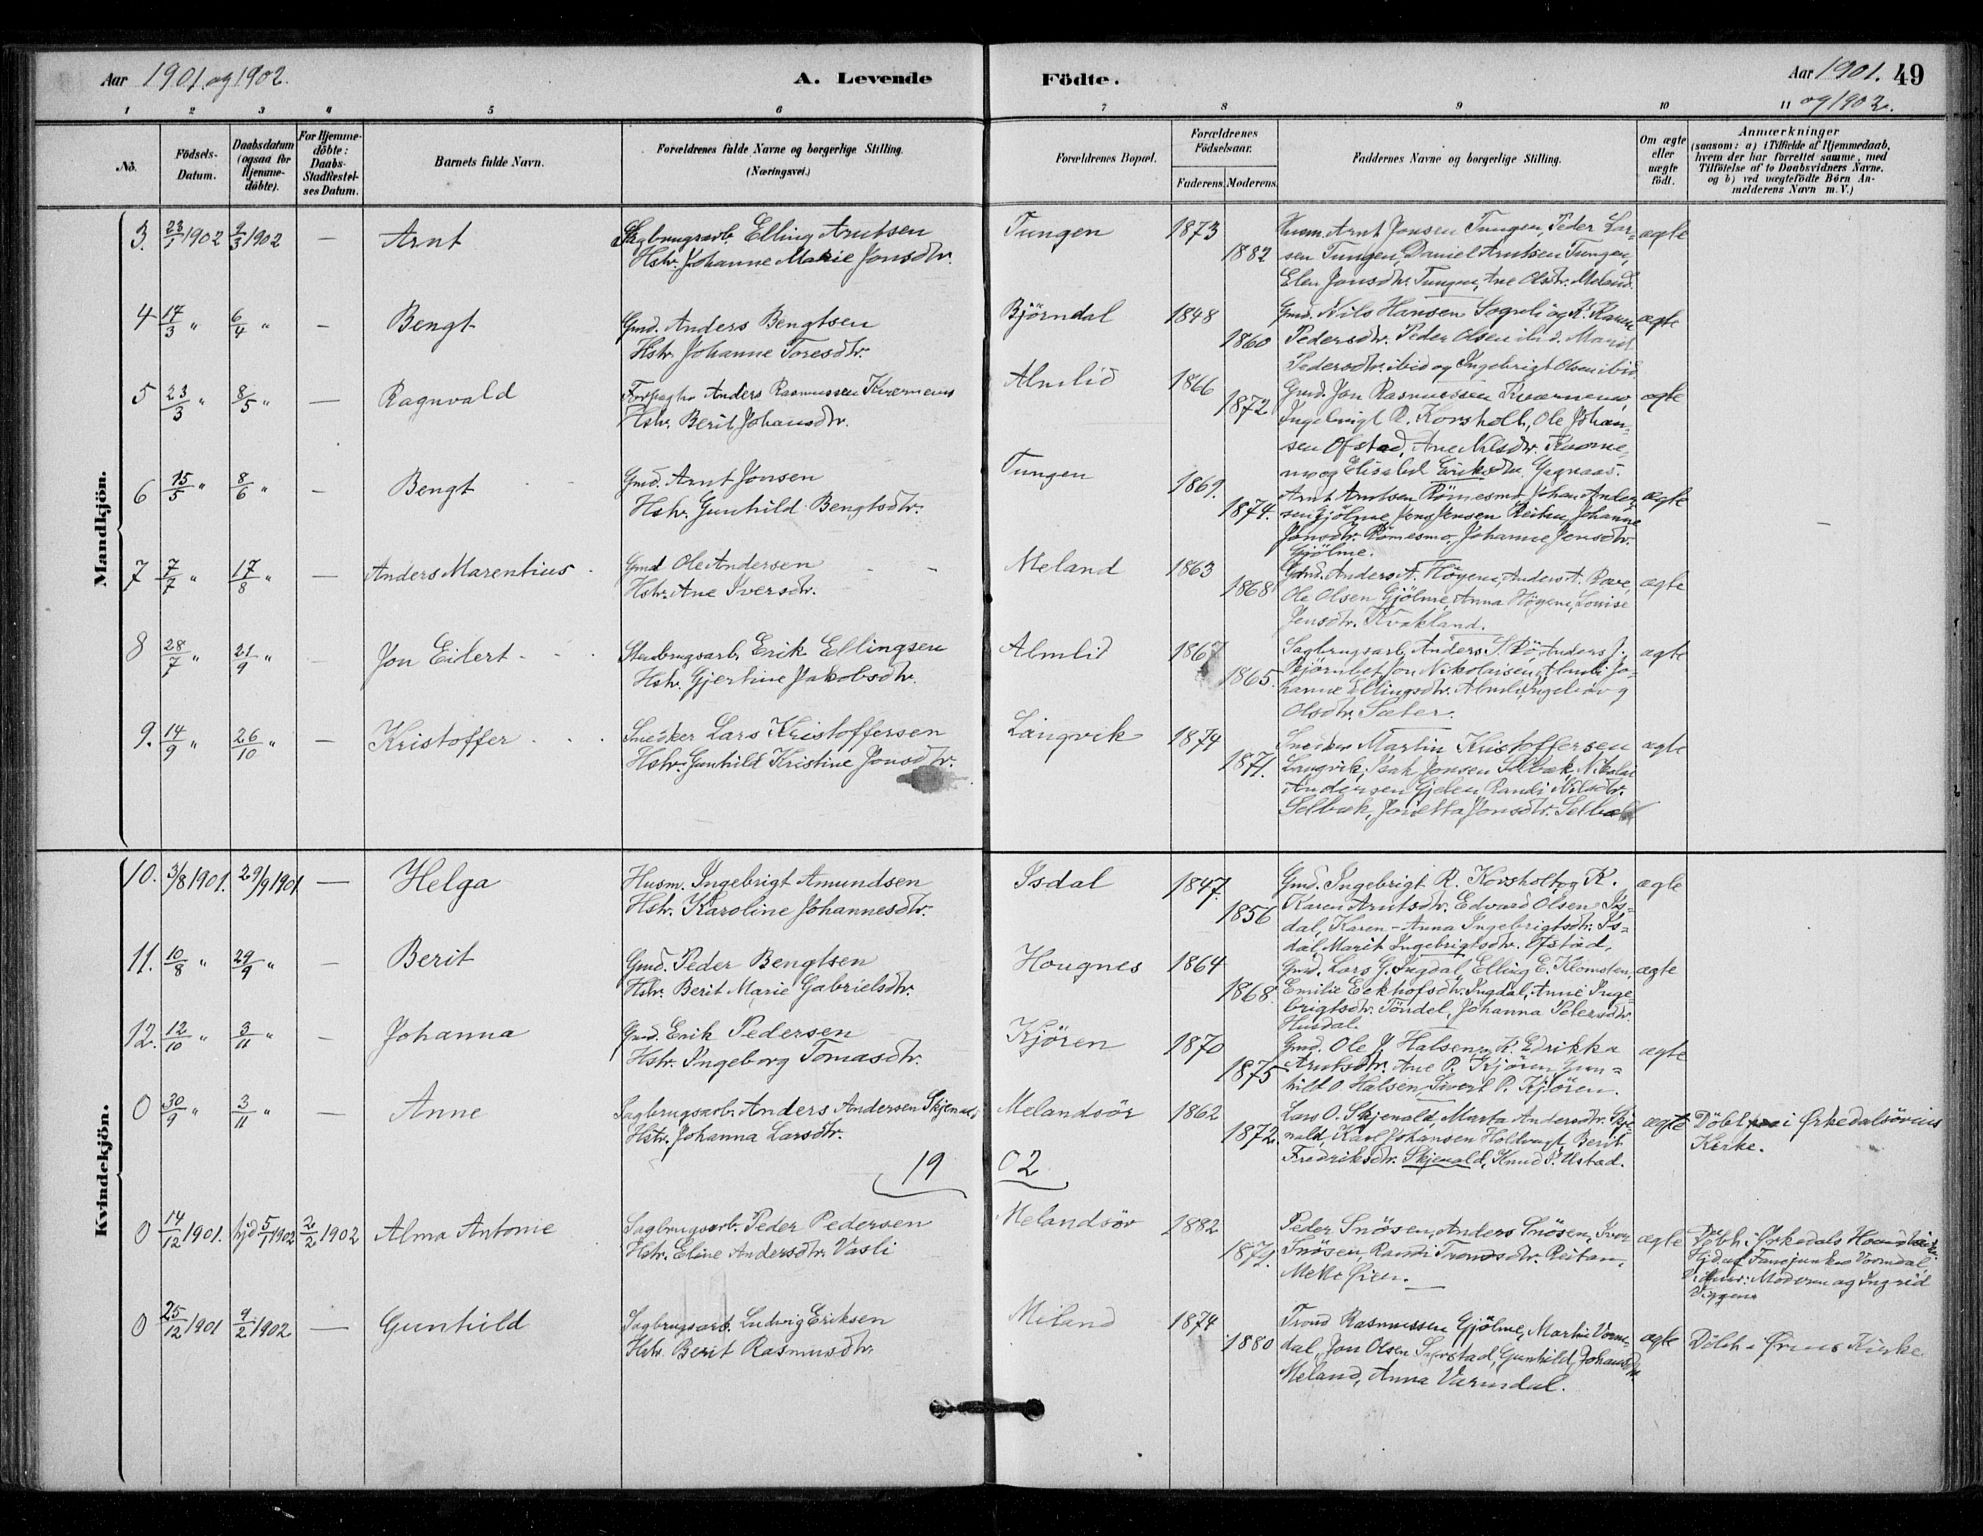 Aar 1901 og 1902.
A. Levende Födte.
Aar 1901. 49
og 1902.
1 2 3 4 5 6 7 8 9 10 11
No.
Födsels-Datum.
Daabsdatum (ogsaa for Hjemme-döbte).
For Hjemme-döbte: Daabs-Stadfæstel-ses Datum.
Barnets fulde Navn.
Forældrenes fulde Navne og borgerlige Stilling. (Næringsvei.)
Forældrenes Bopæl.
Forældrenes Födselsaar.
Faderens. Moderens.
Faddernes Navne og borgerlige Stilling.
Om ægte eller uægte födt.
Anmærkninger
(saasom: a) i Tilfælde af Hjemmedaab,
hvem der har forrettet samme, med
Tilföielse af to Daabsvidners Navne.
og b) ved uægtefödte Börn An-
melderens Navn m. V.)
Mandkjön.
3. 23/1 1902 9/3 1902 — Arnt
Sagbrugsarb. Elling Arntsen
Hstr. Johanne Marie Jonsdtr.
Tungen 1873 1882
Husm. Arnt Jonsen Tungen, Peder Lar-
sen Tungen, Daniel Arntsen Tungen,
Elen Jonsdtr. Tungen, Ane Olsdtr. Meland.
ægte
4 17/3 " 6/4 " — Bengt
Gmd. Anders Bengtsen
Hstr. Johanne Toresdtr.
Björndal 1848 1860
Gmd. Nils Hansen Sognli og K. Karen
Pedersdtr. Peder Olsen ibid. Marit
Pedersdtr. ibid og Ingebrigt Olsen ibid
ægte
5 23/3 " 8/5 " — Ragnvald
Forpagter Anders Rasmussen Kvernmo
Hstr. Berit Johansdtr.
Almlid 1866 1872
Gmd. Jon Rasmussen Kvernemo,
Ingebrigt R. Korsholt, Ole Johan-
sen Ofstad, Ane Nilsdtr. Kverne-
mo og Elisabet Eriksdtr
ægte
6 15/5 " 8/6 " — Bengt
Gmd. Arnt Jonsen
Hstr. Gunhild Bengtsdtr.
Tungen 1869. 1874.
Arnt Arntsen Römesmo, Johan Ander-
sen Gjölme, Jens Jensen Reitan, Johanne
Jonsdtr. Römesmo, Johanne Jensdtr.
Gjölme.
ægte
7 7/7 " 17/8 " — Anders Marentius
Gmd Ole Andersen
Hstr. Ane Iversdtr.
Meland 1863 1868
Gmd. Anders A. Högene, Anders A.
Ole Olsen Gjölme, Anna Högene, Lovise
Jensdtr. Kvakland.
ægte
8 28/7 " 21/9 " — Jon Eilert
Stenbrugsarb. Erik Ellingsen
Hstr. Gjertine Jakobsdtr.
Almlid 1867 1865.
Sagbrugsarb. Anders Anders J.
Björnlid, Jon Nikolaisen Almli Jo-
hanne Ellingsdtr. Almli
Olsdtr. Sæter.
ægte
9. 14/9 " 26/10 " — Kristoffer
Snedker Lars Kristoffersen
Hstr. Gunhild Kristine Jonsdtr.
Langvik 1874 1871.
Snedker Martin Kristoffersen
Langvik, Isak Jonsen Selbæk, Nikolai
Andersen Gjelen Randi Nilsdtr.
Selbæk, Jonetta Jonsdtr. Selbæk
ægte
Kvindekjön.
10. 3/8 1901. 29/9 1901 — Helga
Husm. Ingebrigt Amundsen
Hstr. Karoline Johannesdtr.
Isdal 1847. 1856
Gmd. Ingebrigt R. Korsholt og K.
Karen Arntsdtr. Edvard Olsen Is-
dal, Karen-Anna Ingebrigtsdtr. Is-
dal, Marit Ingebrigtsdtr. Ofstad,
ægte
11. 10/8 " 29/9 " — Berit
Gmd. Peder Bengtsen
Hstr. Berit Marie Gabrielsdtr.
Hougnes 1864 1868.
Gmd. Lars G. Ingdal, Elling E. Klomsten,
Emilie Eekhofsdtr. Ingdal, Anne Inge-
brigtsdtr. Töndel, Johanna Petersdtr.
Husdal.
ægte
12. 12/10 " 3/11 " — Johanna
Gmd. Erik Pedersen
Hstr. Ingeborg Tomasdtr.
Kjören 1870 1875
Gmd. Ole J Halsen, K. Edrikka
Arntsdtr. Ane P. Kjören, Gun-
hild O. Halsen, Sivert P. Kjören.
ægte
0 30/9 " 3/11 " — Anne
Sagbrugsarb. Anders Andersen Skjenald,
Hstr. Johanna Larsdtr.
Melandsör 1862 1872.
Lars O. Skjenald, Marta Andersdtr. Skje-
nald, Karl Johansen Holdvagt, Berit
Fredriksdtr. Skjenald, Knud P. Ustad.
ægte
Döbt i Ørkedalsörens
Kirke.
19 02
0 14/12 1901. hjd 5/1 1902 2/2 1902 Alma Antonie
Sagbrugsarb. Peder Pedersen
Hstr. Eline Andersdtr. Vasli
Melandsör 1882 1872.
Peder Snösen, Anders Snösen, Iver
Snösen, Randi Trondsdtr. Reitan,
Mette Öien.
ægte
Döbt i Ørkedals
Hjd. af Vormdal,
Vidner: Moderen og Ingrid
0 25/12 1901 9/2 1902 — Gunhild
Sagbrugsarb. Ludvig Eriksen
Hstr. Berit Rasmusdtr
Meland 1874 1880
Trond Rasmussen Gjölme, Martin Vorm-
dal, Jon Olsen Gunhild Johansdtr.
Meland, Anna Varmdal.
ægte
Döbt i Ørens Kirke